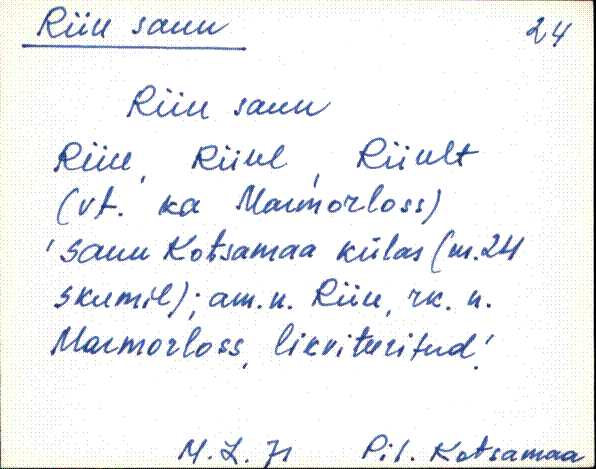 Rüü saun 24
Rüü saun
Rüü, Rüül, Rüült
(vt. ka Marmorloss)
'saun Kotsamaa külas (m.24
skeemil); am.n. Rüü, rk. n.
Marmorloss, likviteeritud.'
M.L. 71 Pil. Kotsamaa